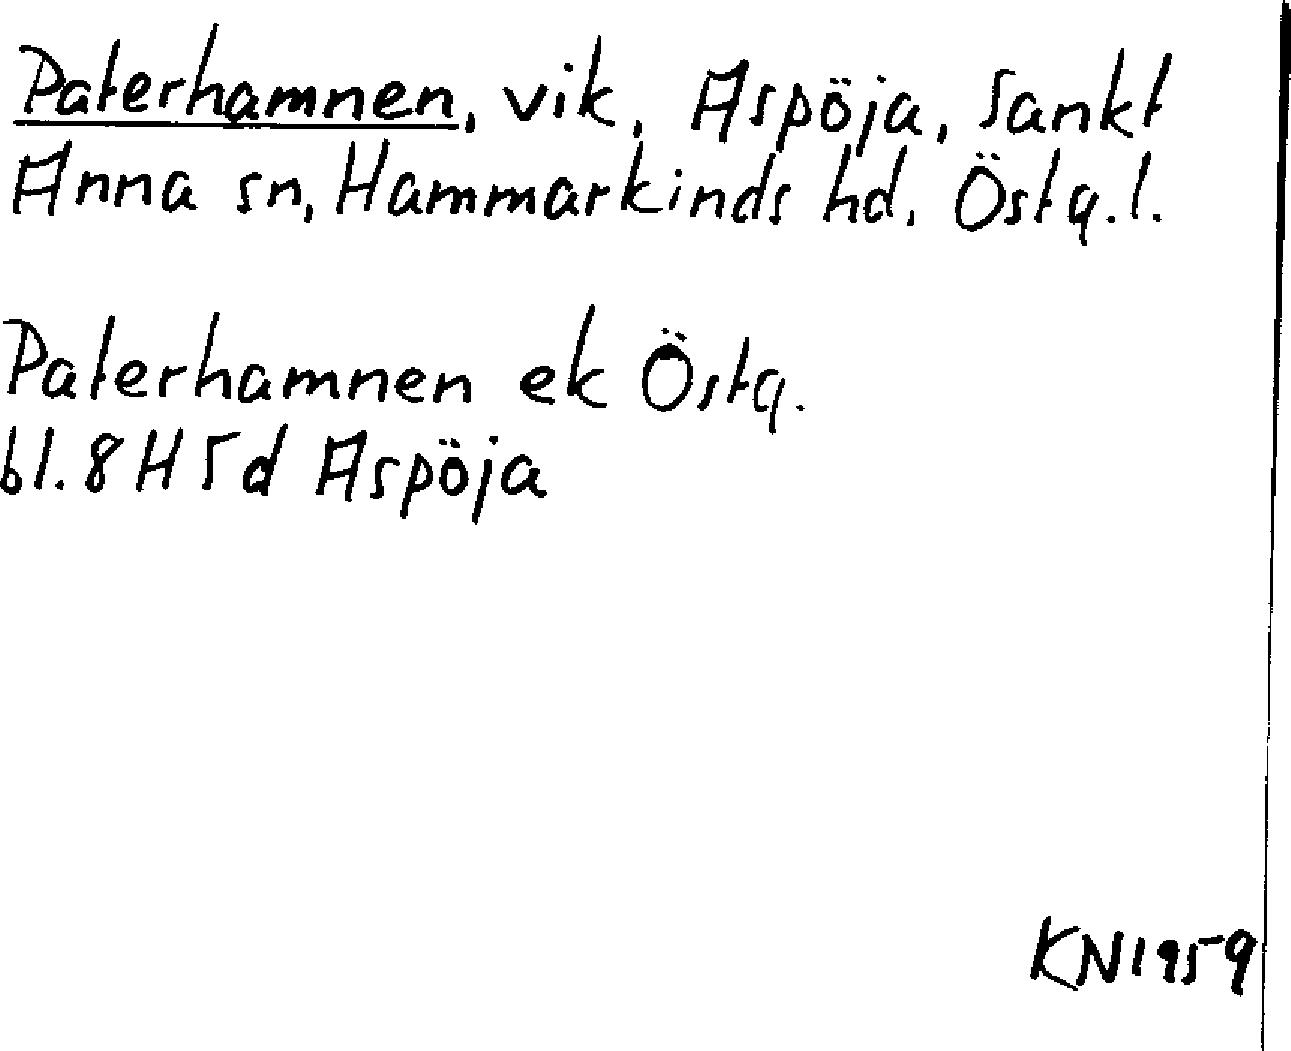 Paterhamnen, vik, Aspöja, Sankt
Anna sn, Hammarkinds hd. Östg.l.
Paterhamnen ek Östg.
bl. 8 H 5 d Aspöja
KN 1959